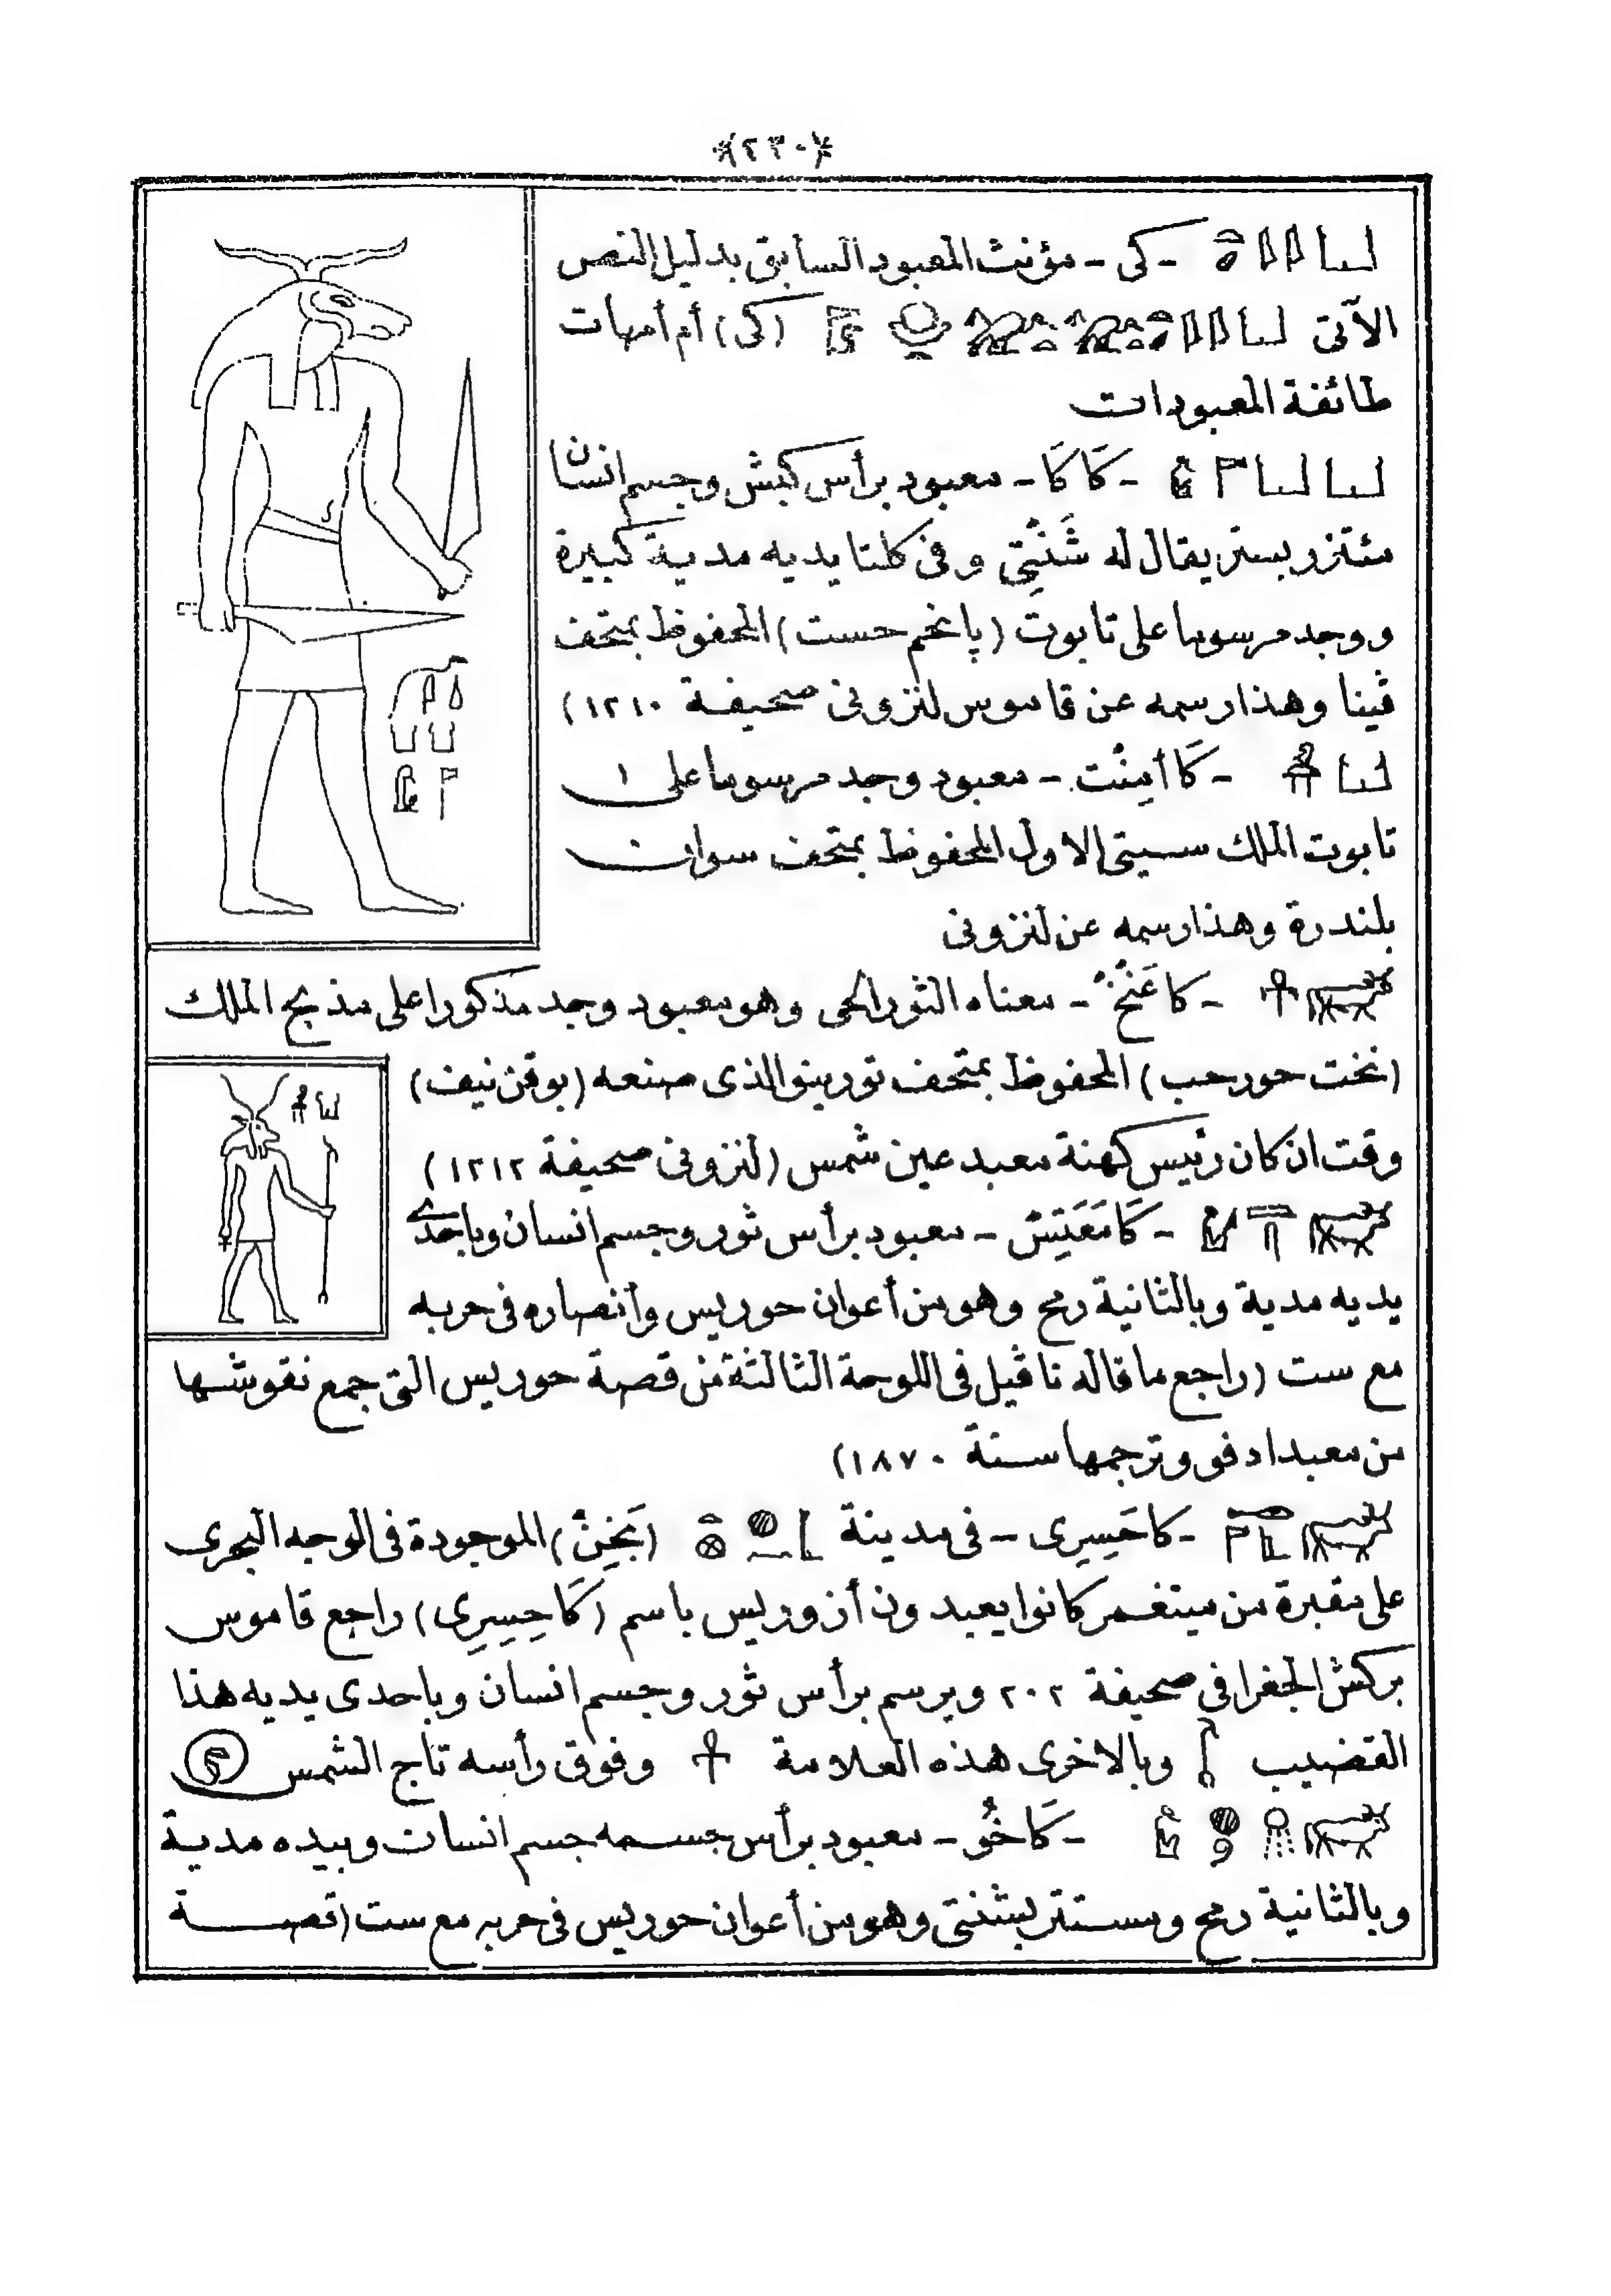 *(٢٣٠)*
- كى - مؤنث المعبود السابق بدليل النص
الآتى (كى) أم أمهات
طائفة المعبودات
- كَاكَا - معبود برأس كبش وجسم انسان
مئتزر بستر يقال له شَنْتِى وفى كلتا يديه مدية كبيرة
ووجد مرسوما على تابوت (پانحم حست) المحفوظ بمتحف
ڤينا وهذا رسمه عن قاموس لنزونى صحيفة ١٢١٠)
- كَا أمِنْت - معبود وجد مرسوما على
تابوت الملك سيتى الاول المحفوظ بمتحف سوان
بلندرة وهذا رسمه عن لنزونى
- كا عَنْخْ - معناه الثور الحى وهو معبود وجد مذكورا على مذبح الملك
(نخت حور حب) المحفوظ بمتحف تورينو الذى صنعه (بوقن نيف)
وقت ان كان رئيس كهنة معبد عين شمس (لنزونى صحيفة ١٢١٢)
- معبود برأس ثور وجسم انسان وباحدى
يديه مدية وبالثانية رمح وهو من أعوان حوريس وأنصاره فى حربه
مع ست (راجع ما قاله ناڤيل فى اللوحة الثالثة من قصة حوريس التى جمع نقوشها
من معبد ادفو وترجمها سنة ١٨٧٠)
- كا حَسِرِى - فى مدينة (بَخِنْ) الموجودة فى الوجه البحرى
على مقبرة من كانوا يعبدون أزوريس باسم (كَا حِسِرِى) راجع قاموس
بركش الجغرافى صحيفة ٢٠٢ ويرسم برأس ثور وجسم انسان وباحدى يديه هذا
القضيب وبالاخرى هذه العلامة وفوق رأسه تاج الشمس
- كَاخُو - معبود برأس جسمه جسم انسان وبيده مدية
وبالثانية رمح ومستتر بشنتى وهو من أعوان حوريس فى حربه مع ست (قصة